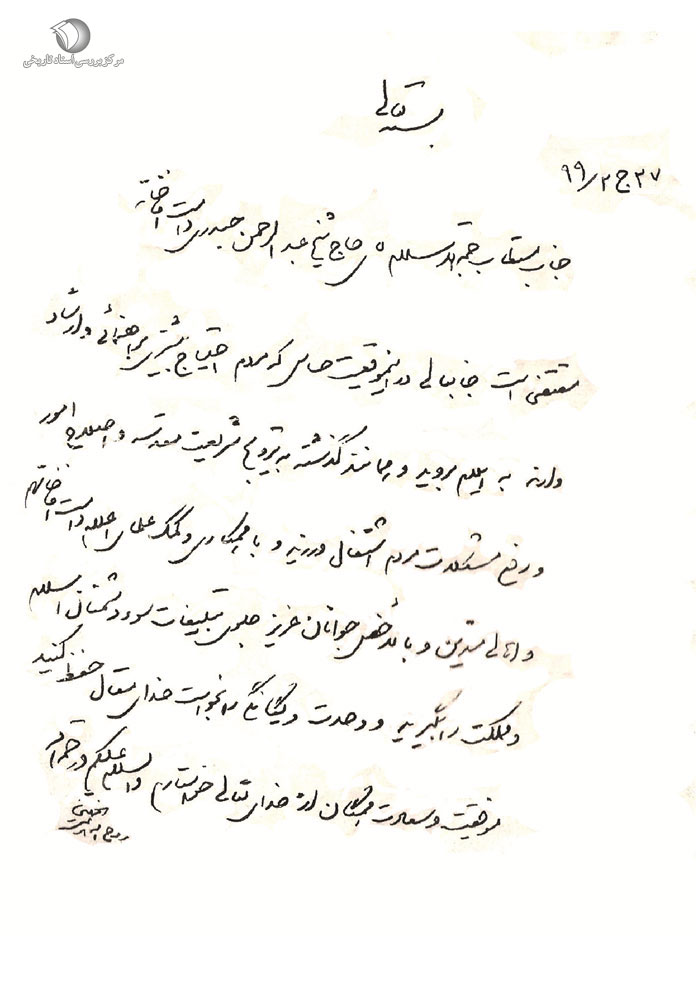 مرکز بررسی اسناد تاریخی
بسمه تعالی
۲۷ ج ۲ / ۹۹
جناب مستطاب حجةالاسلام آقای حاج شیخ عبدالرحمن حیدری دامت افاضاته
مقتضی است جنابعالی در این موقعیت حساس که مردم احتیاج بیشتری براهنمائی و ارشاد
دارند به ایلام بروید و همانند گذشته به ترویج شریعت مقدسه و اصلاح امور
و رفع مشکلات مردم اشتغال ورزید و با همکاری و کمک علمای اعلام دامت افاضاتهم
و اهالی متدین و بالاخص جوانان عزیز جلوی تبلیغات سوء دشمنان اسلام
و مملکت را بگیرید و وحدت و یگانگی را بخواست خدای متعال حفظ کنید
موفقیت و سعادت همگان را از خدای تعالی خواستارم والسلام علیکم و رحمة الله
روح الله الموسوی الخمینی